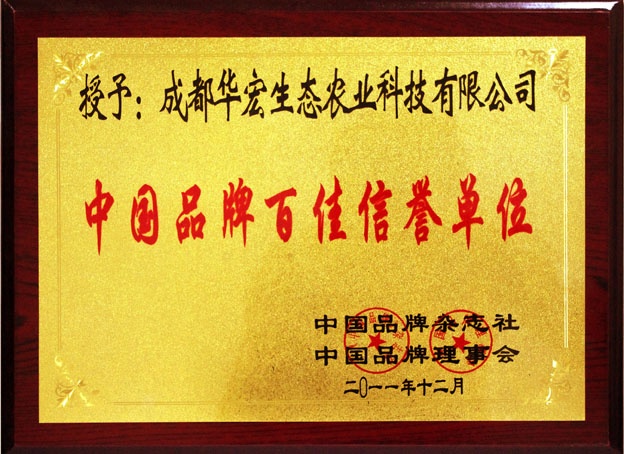 授予：成都华宏生态农业科技有限公司
中国品牌百佳信誉单位
中国品牌杂志社
中国品牌理事会
二0一一年十二月